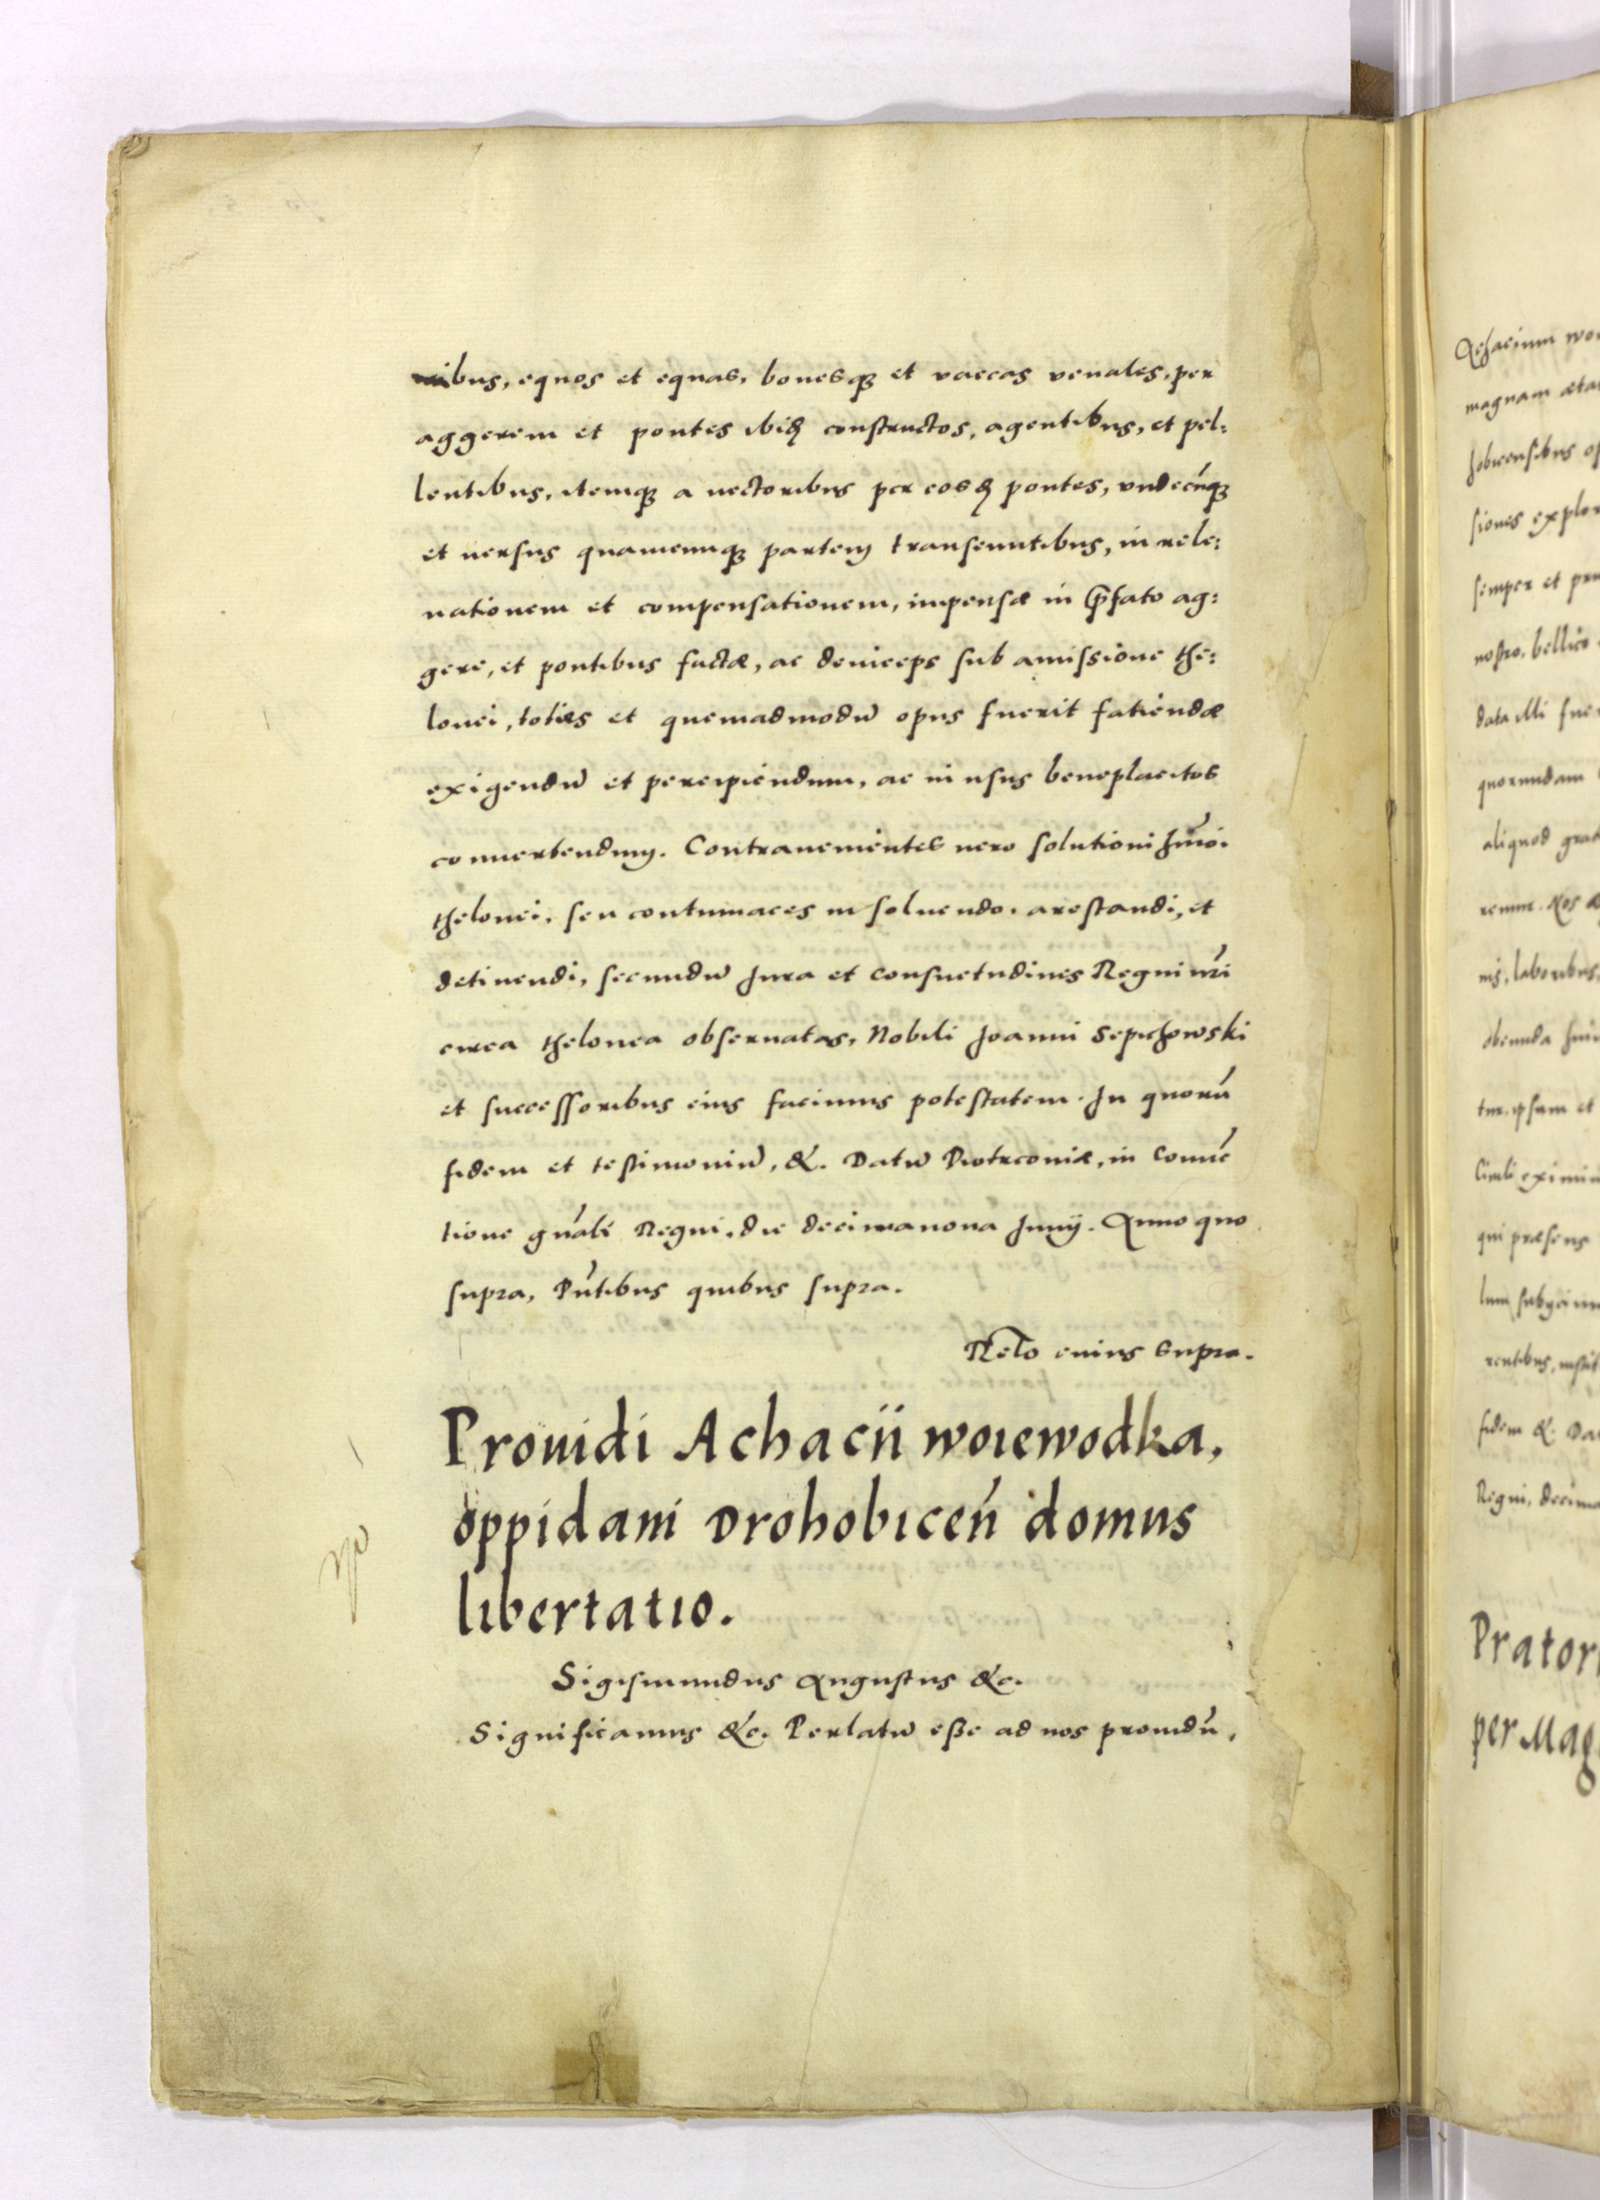 nibus, equos et equas, bouesqꝫ et vaccas venales, per
aggerem et pontes ibid constructos, agentibus, et pel:
lentibus, itemqꝫ a vectoribus per eosd pontes, vndecúnqꝫ
et uersus quamcunqꝫ partem transeuntibus, in rele:
uationem et compensationem, impensæ in p̄fato ag:
gere, et pontibus factæ, ac deinceps sub amissione the:
lonei, toties et quemadmodū opus fuerit fatiendæ
exigendū et percipiendum, ac in usus beneplacitos
conuertendum. Contrauenientes uero solutioni hm̄oi.
thelonei, seu contumaces in soluendo, arestandi, et
detinendi, secundū Jura et consuetudines Regni nr̄i
circa thelonea obseruatas, Nobili Joanni Sepichowski
et successoribus eius facimus potestatem. In quorū
fidem et testimoniū, &. Datū Piotrconiæ, in Conuē
tione gn̄ali Regni, die decimanona Junij. Anno quo
supra, Pn̄tibus quibus supra.
Relō cuius supra.
Prouidi Achacii woiewodka,
oppidani Drohobiceń domus
libertatio.
Sigismundus Augustus &c.
Significamus &c. Perlatū eße ad nos prouidū,
Achacium
magnam
hobicensibus
semper et
nostro, bellico
data illi
quorundam
aliquod
Nos
nis, laboribus,
obeunda
tur, ipsum et
Ciuili
qui præsens
fidem &.
Regni,